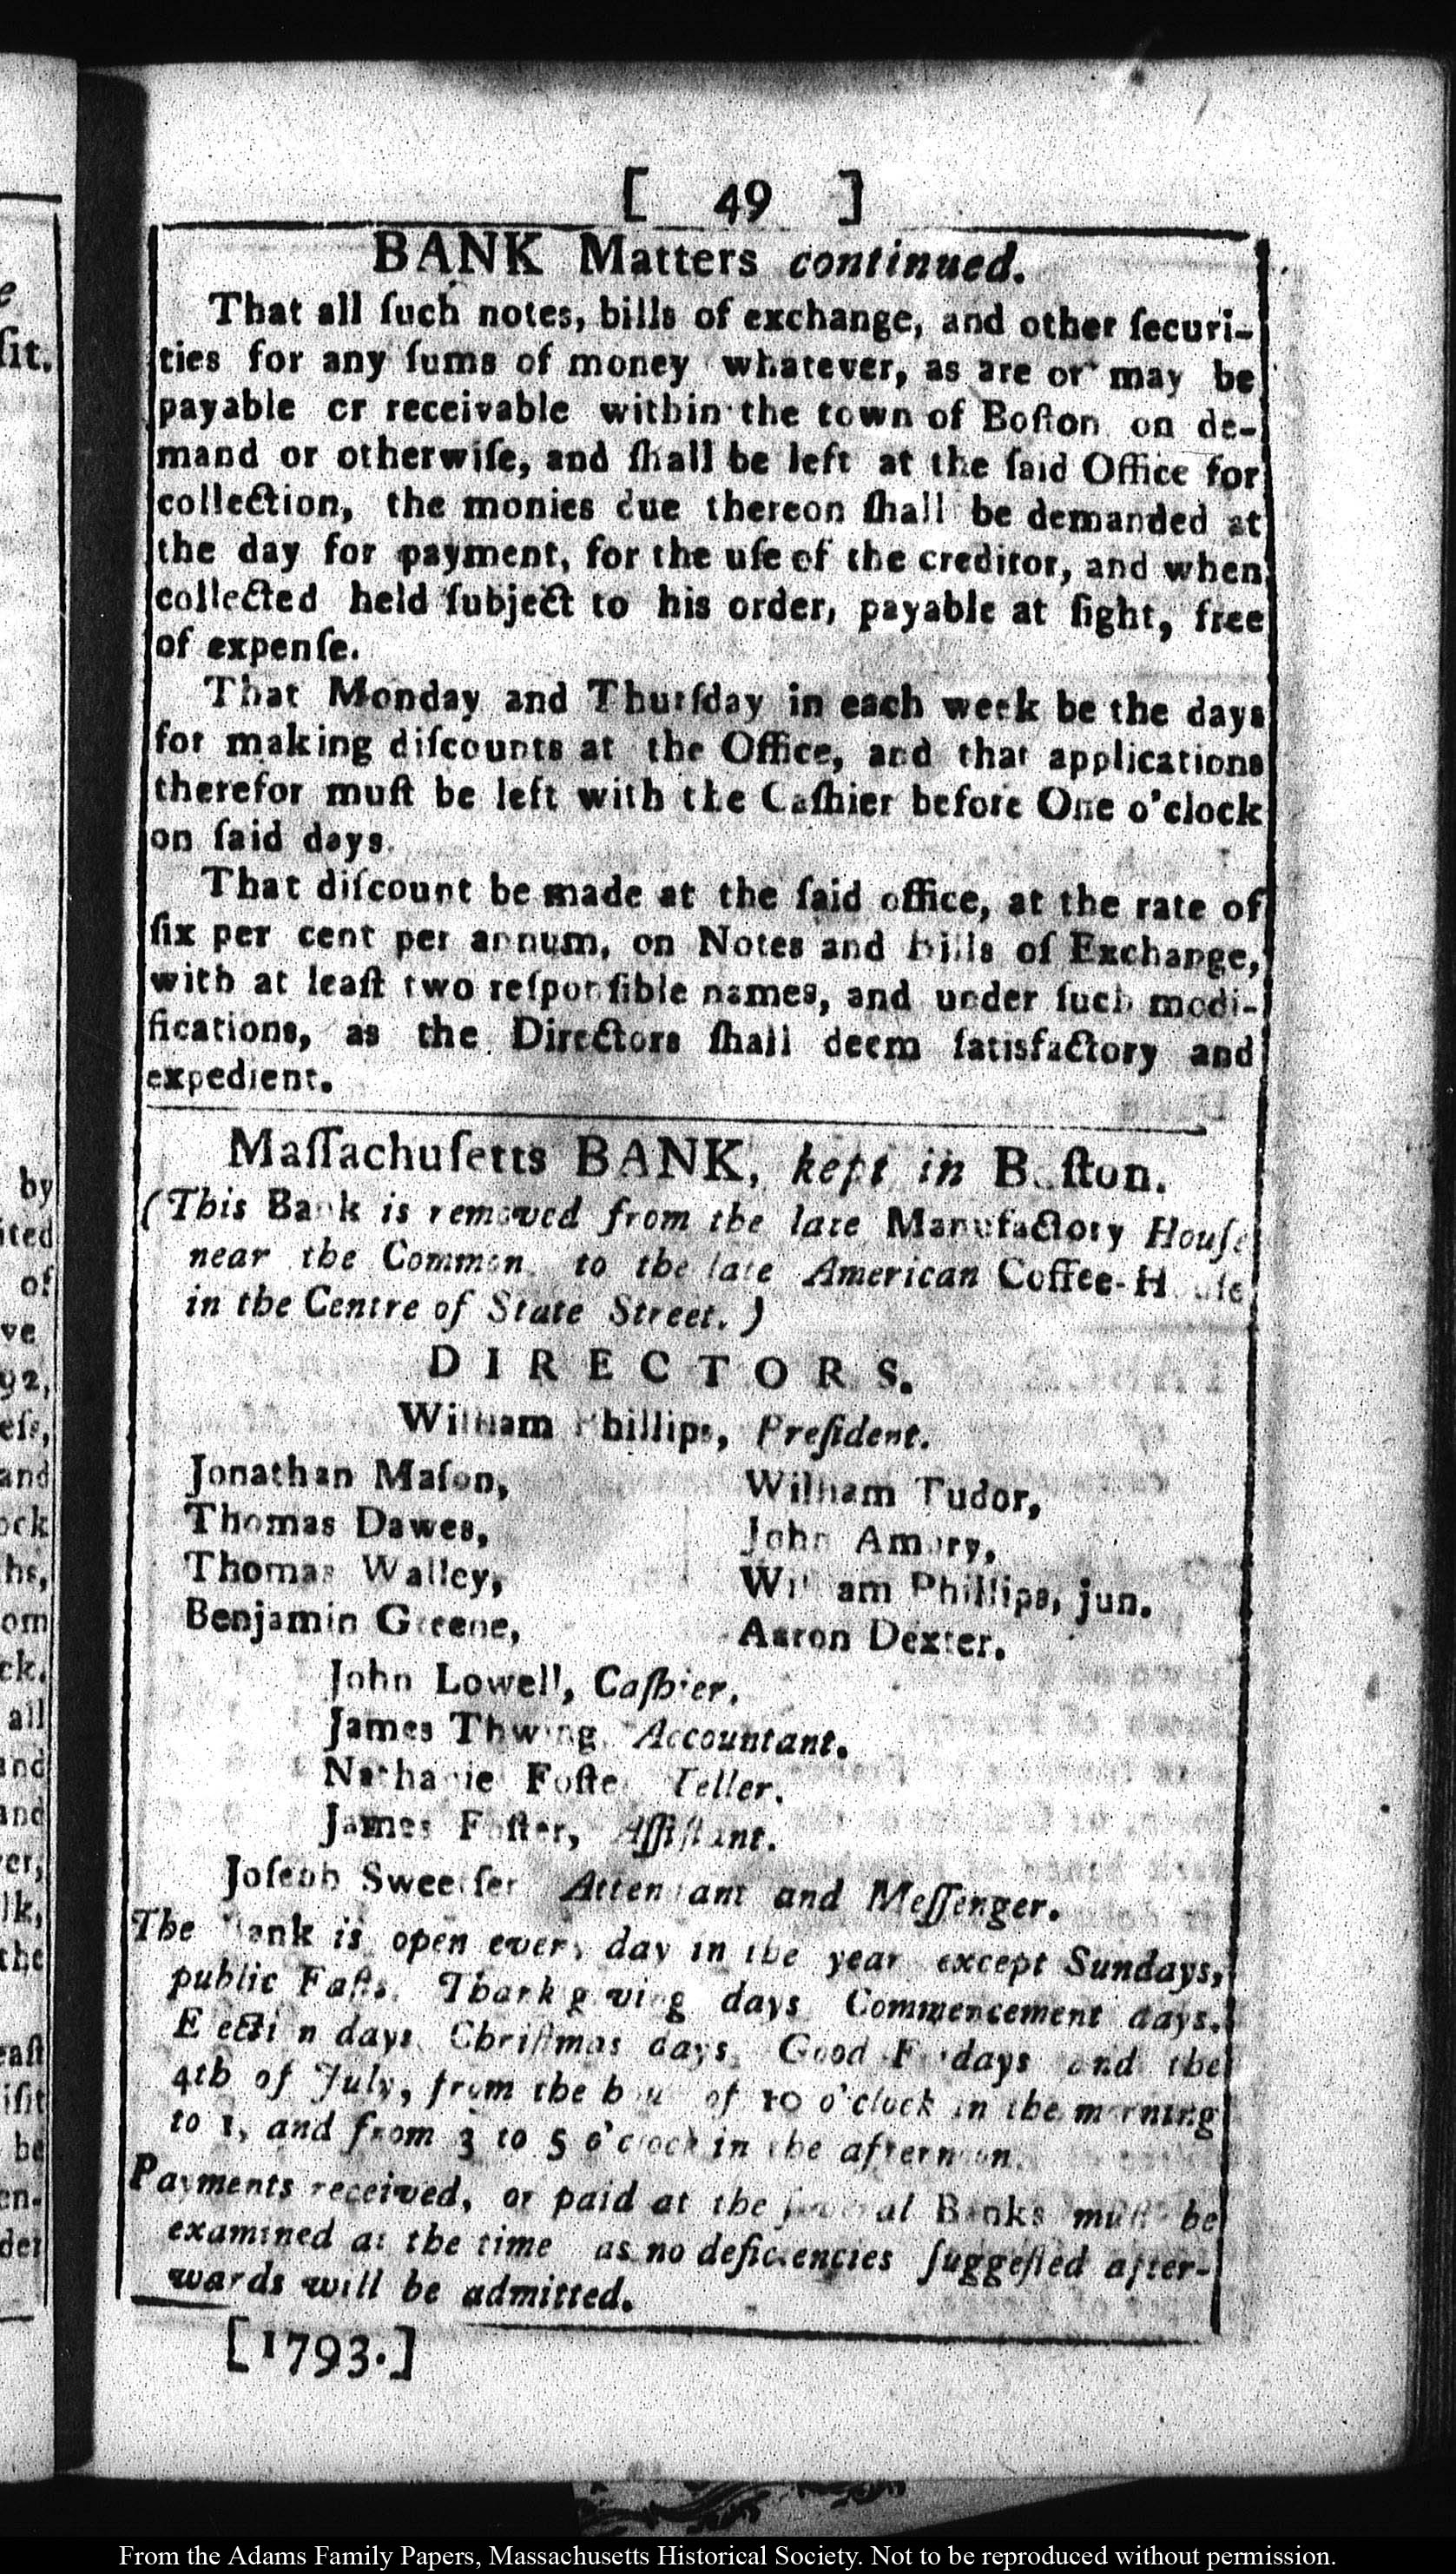 [ 49 ]
BANK Matters continued.
That all ſuch notes, bills of exchange, and other ſecuri-
ties for any ſums of money whatever, as are or may be
payable or receivable within the town of Boſton on de-
mand or otherwiſe, and ſhall be left at the ſaid Office for
collection, the monies due thereon ſhall be demanded at
the day for payment, for the uſe of the creditor, and when
collected held ſubject to his order, payable at ſight, free
of expenſe.
That Monday and Thurſday in each week be the days
for making diſcounts at the Office, and that applications
therefor muſt be left with the Caſhier before One o'clock
on ſaid days.
That diſcount be made at the ſaid office, at the rate of
ſix per cent per annum, on Notes and Bills of Exchange,
with at leaſt two reſponſible names, and under ſuch modi-
fications, as the Directors ſhall deem ſatisfactory and
expedient.
Maſſachuſetts BANK, kept in Boſton.
(This Bank is removed from the late Manufactory Houſe
near the Common, to the late American Coffee-Houſe
in the Centre of State Street.)
DIRECTORS.
William Phillips, Preſident.
Jonathan Maſon, William Tudor,
Thomas Dawes, John Amory,
Thomas Walley, William Phillips, jun.
Benjamin Greene, Aaron Dexter.
John Lowell, Caſhier.
James Thwing, Accountant.
Nathaniel Foſter, Teller.
James Foſter, Aſſiſtant.
Joſeph Sweetſer Attendant and Meſſenger.
The Bank is open every day in the year except Sundays,
public Faſts, Thankſgiving days, Commencement days,
Election days, Chriſtmas days, Good Fridays and the
4th of July, from the hour of 10 o'clock in the morning
to 1, and from 3 to 5 o'clock in the afternoon.
Payments received, or paid at the ſeveral Banks muſt be
examined at the time as no deficiencies ſuggeſted after-
wards will be admitted.
[1793.]
From the Adams Family Papers, Massachusetts Historical Society. Not to be reproduced without permission.